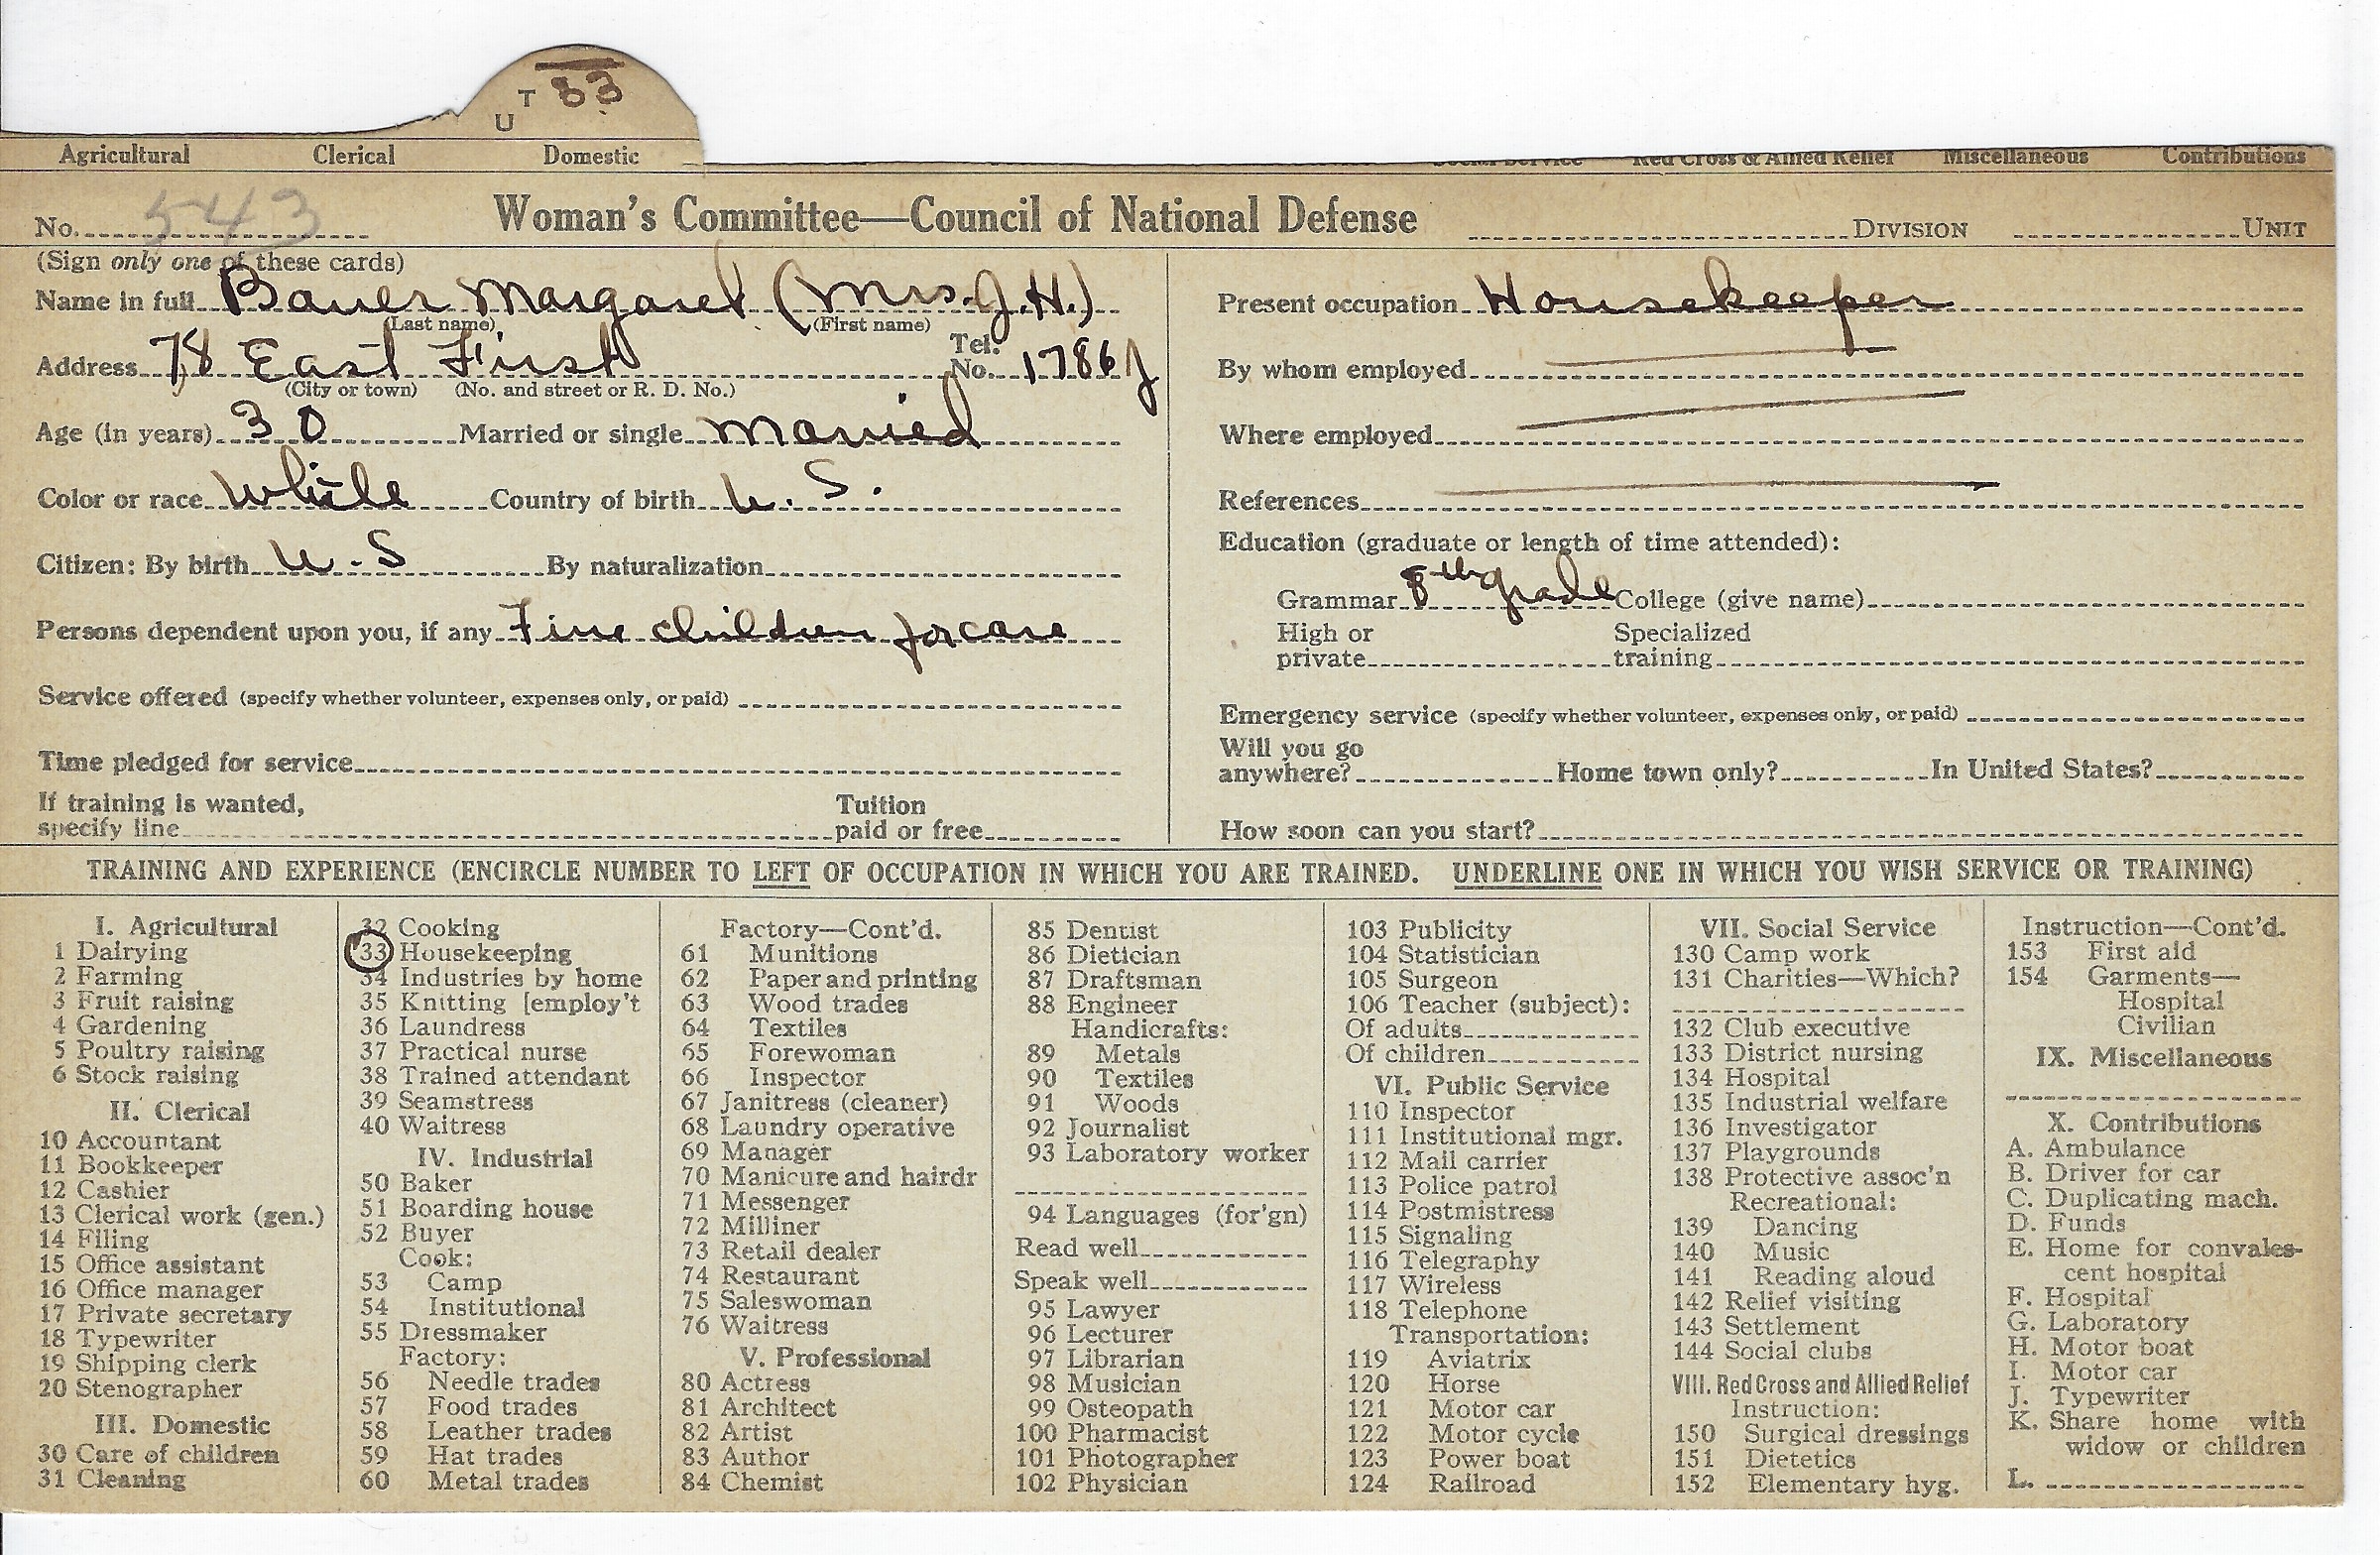 T 33
U
Agricultural Clerical Domestic Social Service Red Cross & Allied Relief Miscellaneous Contributions
No. 543 Woman's Committee—Council of National Defense DIVISION UNIT
(Sign only one of these cards)
Name in full Bauer Margaret (Mrs. J.H.)
(Last name) (First name)
Address 78 East First Tel. No. 1786J
(City or town) (No. and street or R. D. No.)
Age (in years) 30 Married or single Married
Color or race White Country of birth U. S.
Citizen: By birth U. S By naturalization
Persons dependent upon you, if any Five children for care
Service offered (specify whether volunteer, expenses only, or paid)
Time pledged for service
If training is wanted,
specify line Tuition paid or free
Present occupation Housekeeper
By whom employed
Where employed
References
Education (graduate or length of time attended):
Grammar 8th grade College (give name)
High or private Specialized training
Emergency service (specify whether volunteer, expenses only, or paid)
Will you go
anywhere? Home town only? In United States?
How soon can you start?
TRAINING AND EXPERIENCE (ENCIRCLE NUMBER TO LEFT OF OCCUPATION IN WHICH YOU ARE TRAINED. UNDERLINE ONE IN WHICH YOU WISH SERVICE OR TRAINING)
I. Agricultural
1 Dairying
2 Farming
3 Fruit raising
4 Gardening
5 Poultry raising
6 Stock raising
II. Clerical
10 Accountant
11 Bookkeeper
12 Cashier
13 Clerical work (gen.)
14 Filing
15 Office assistant
16 Office manager
17 Private secretary
18 Typewriter
19 Shipping clerk
20 Stenographer
III. Domestic
30 Care of children
31 Cleaning
32 Cooking
33 Housekeeping
34 Industries by home
35 Knitting [employ't
36 Laundress
37 Practical nurse
38 Trained attendant
39 Seamstress
40 Waitress
IV. Industrial
50 Baker
51 Boarding house
52 Buyer
Cook:
53 Camp
54 Institutional
55 Dressmaker
Factory:
56 Needle trades
57 Food trades
58 Leather trades
59 Hat trades
60 Metal trades
Factory—Cont'd.
61 Munitions
62 Paper and printing
63 Wood trades
64 Textiles
65 Forewoman
66 Inspector
67 Janitress (cleaner)
68 Laundry operative
69 Manager
70 Manicure and hairdr
71 Messenger
72 Milliner
73 Retail dealer
74 Restaurant
75 Saleswoman
76 Waitress
V. Professional
80 Actress
81 Architect
82 Artist
83 Author
84 Chemist
85 Dentist
86 Dietician
87 Draftsman
88 Engineer
Handicrafts:
89 Metals
90 Textiles
91 Woods
92 Journalist
93 Laboratory worker
94 Languages (for'gn)
Read well
Speak well
95 Lawyer
96 Lecturer
97 Librarian
98 Musician
99 Osteopath
100 Pharmacist
101 Photographer
102 Physician
103 Publicity
104 Statistician
105 Surgeon
106 Teacher (subject):
Of adults
Of children
VI. Public Service
110 Inspector
111 Institutional mgr.
112 Mail carrier
113 Police patrol
114 Postmistress
115 Signaling
116 Telegraphy
117 Wireless
118 Telephone
Transportation:
119 Aviatrix
120 Horse
121 Motor car
122 Motor cycle
123 Power boat
124 Railroad
VII. Social Service
130 Camp work
131 Charities—Which?
132 Club executive
133 District nursing
134 Hospital
135 Industrial welfare
136 Investigator
137 Playgrounds
138 Protective assoc'n
Recreational:
139 Dancing
140 Music
141 Reading aloud
142 Relief visiting
143 Settlement
144 Social clubs
VIII. Red Cross and Allied Relief
Instruction:
150 Surgical dressings
151 Dietetics
152 Elementary hyg.
Instruction—Cont'd.
153 First aid
154 Garments—
Hospital
Civilian
IX. Miscellaneous
X. Contributions
A. Ambulance
B. Driver for car
C. Duplicating mach.
D. Funds
E. Home for convales-
cent hospital
F. Hospital
G. Laboratory
H. Motor boat
I. Motor car
J. Typewriter
K. Share home with
widow or children
L.